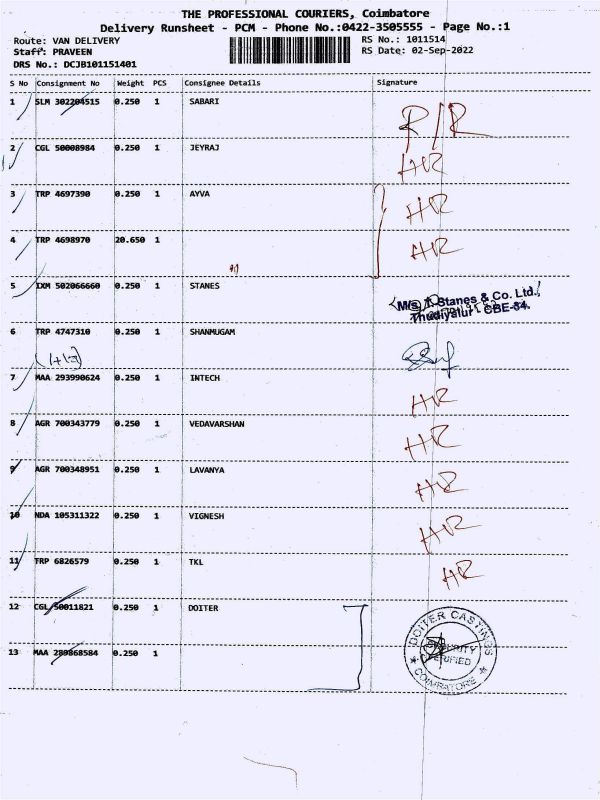 THE PROFESSIONAL COURIERS, Coimbatore
Delivery Runsheet - PCM - Phone No.:0422-3505555 - Page No.:1
Route: VAN DELIVERY RS No.: 1011514
Staff: PRAVEEN RS Date: 02-Sep-2022
DRS No.: DCJB101151401
S No Consignment No Weight PCS Consignee Details Signature
1 SLM 302204515 0.250 1 SABARI R/R
2 CGL 50008984 0.250 1 JEYRAJ HR
3 TRP 4697390 0.250 1 AYVA HR
4 TRP 4698970 20.650 1 HR
5 IXM 502066660 0.250 1 STANES M/s. T. Stanes & Co. Ltd.,
Thudiyalur CBE-34.
6 TRP 4747310 0.250 1 SHANMUGAM
7 MAA 293990624 0.250 1 INTECH HR
8 AGR 700343779 0.250 1 VEDAVARSHAN HR
9 AGR 700348951 0.250 1 LAVANYA HR
10 NDA 105311322 0.250 1 VIGNESH HR
11 TRP 6826579 0.250 1 TKL HR
12 CGL 50011821 0.250 1 DOITER DOITER CASTINGS
13 MAA 289868584 0.250 1 SECURITY
VERIFIED
COIMBATORE